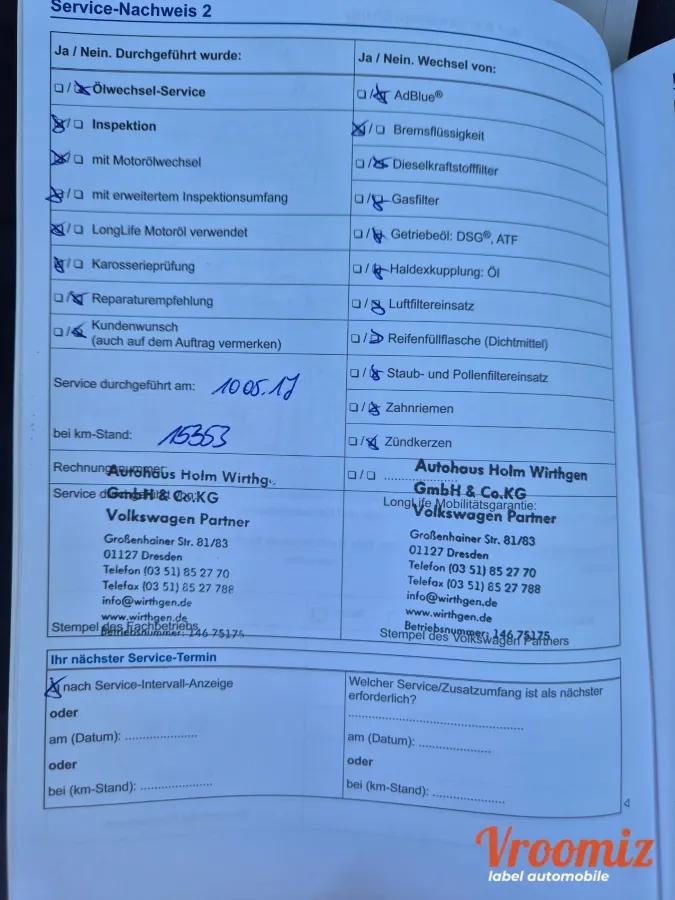 Service-Nachweis 2
Ja / Nein. Durchgeführt wurde:
☐ / ☒ Ölwechsel-Service
☒ / ☐ Inspektion
☒ / ☐ mit Motorölwechsel
☒ / ☐ mit erweitertem Inspektionsumfang
☒ / ☐ LongLife Motoröl verwendet
☒ / ☐ Karosserieprüfung
☐ / ☒ Reparaturempfehlung
☐ / ☒ Kundenwunsch
(auch auf dem Auftrag vermerken)
Service durchgeführt am: 10 05.17
bei km-Stand: 15353
Rechnungsnummer:
Autohaus Holm Wirthg
Service durchgeführt von:
GmbH & Co.KG
Volkswagen Partner
Großenhainer Str. 81/83
01127 Dresden
Telefon (03 51) 85 27 70
Telefax (03 51) 85 27 788
info@wirthgen.de
www.wirthgen.de
Stempel des Fachbetriebs
Betriebsnummer: 146 75175
Ja / Nein. Wechsel von:
☐ / ☒ AdBlue®
☒ / ☐ Bremsflüssigkeit
☐ / ☒ Dieselkraftstofffilter
☐ / ☒ Gasfilter
☐ / ☒ Getriebeöl: DSG®, ATF
☐ / ☒ Haldexkupplung: Öl
☐ / ☒ Luftfiltereinsatz
☐ / ☒ Reifenfüllflasche (Dichtmittel)
☐ / ☒ Staub- und Pollenfiltereinsatz
☐ / ☒ Zahnriemen
☐ / ☒ Zündkerzen
☐ / ☐ ....................
Autohaus Holm Wirthgen
GmbH & Co.KG
LongLife Mobilitätsgarantie:
Volkswagen Partner
Großenhainer Str. 81/83
01127 Dresden
Telefon (03 51) 85 27 70
Telefax (03 51) 85 27 788
info@wirthgen.de
www.wirthgen.de
Betriebsnummer: 146 75175
Stempel des Volkswagen Partners
Ihr nächster Service-Termin
☒ nach Service-Intervall-Anzeige
oder
am (Datum): ....................
oder
bei (km-Stand): ....................
Welcher Service/Zusatzumfang ist als nächster
erforderlich?
..................................................
am (Datum): ....................
oder
bei (km-Stand): ....................
4
Vroomiz
label automobile